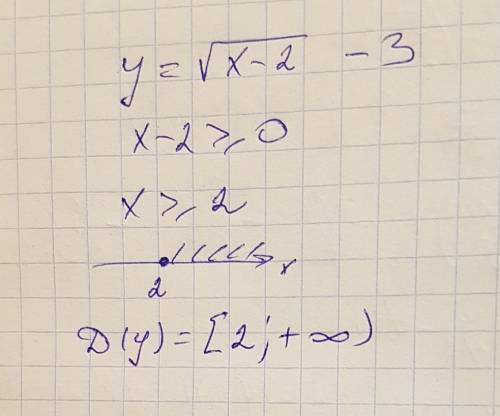 y = √(x-2) - 3
x-2 ≥ 0
x ≥ 2
2 x
D(y) = [2; +∞)